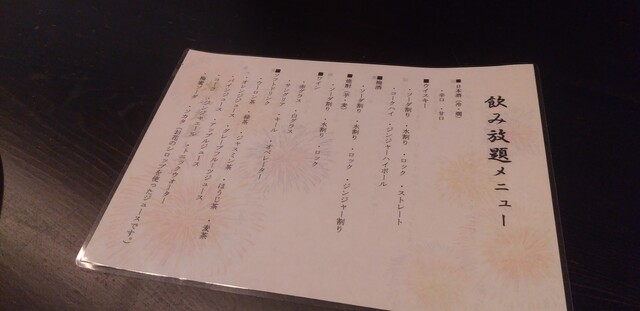 飲み放題メニュー
■日本酒(冷・燗)
・辛口 ・甘口
■ウイスキー
・ソーダ割り ・水割り ・ロック ・ストレート
・コークハイ ・ジンジャーハイボール
■梅酒
・ソーダ割り ・水割り ・ロック ・ジンジャー割り
■焼酎(芋・麦)
・ソーダ割り ・水割り ・ロック
■ワイン
・赤グラス ・白グラス
・キール ・オペレーター
■ソフトドリンク
・ウーロン茶 ・緑茶 ・ジャスミン茶 ・ほうじ茶 ・麦茶
・オレンジジュース ・グレープフルーツジュース
・アップルジュース
・コーラ ・ジンジャエール ・トニックウォーター
(お花のシロップを使ったジュースです。)